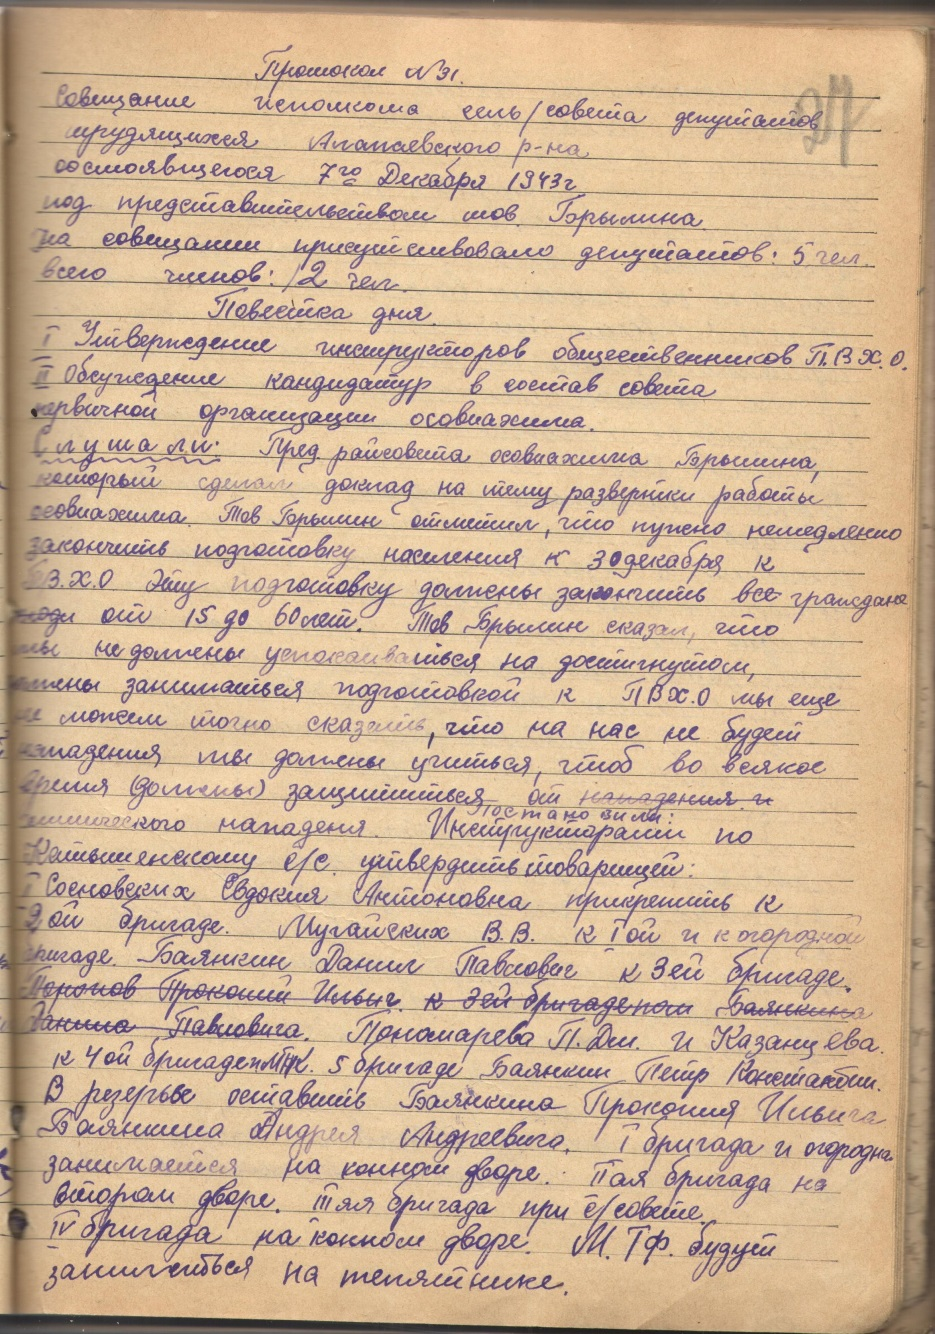 Протокол №31.
27
Совещание исполкома сель/совета депутатов
трудящихся Алапаевского р-на
состоявщегося 7го Декабря 1943г
под представительством тов. Брылина.
на совещании присутствовало депутатов: 5 чел.
всего членов: 12 чел.
Повестка дня.
I Утверждение инструкторов общественников П.В.Х.О.
II Обсуждение кандидатур в состав совета
первичной организации осовиахима.
Слушали: Пред. райсовета осовиахима Брылина,
который сделал доклад на тему развертки работы
осовиахима. Тов Брылин отметил, что нужно немедленно
закончить подготовку населения к 30 декабря к
ПВ.Х.О Эту подготовку должны закончить все граждане
от 15 до 60 лет. Тов Брылин сказал, что
мы не должны успокаиваться на достигнутом,
должны заниматься подготовкой к ПВХ.О мы еще
не можем точно сказать, что на нас не будет
нападения мы должны учиться, чтоб во всякое
время (должны) защититься от нападения и
химического нападеня. Постановили: Инструкторами по
Катышенскому с/с. утвердить товарищей:
I Сосновских Евдокия Антоновна прикрепить к
2ой бригаде. Мугайских В.В. к Iой и к огородной
бригаде. Баянкин Данил Павлович к 3ей бригаде.
Прокопий Ильич к 3ей бригаде Баянкина
Данила Павловича. Пономарева П.Дм. и Казанцева.
к 4ой бригаде 5 бригаде Баянкин Петр Константин.
В резерве оставить Баянкина Прокопия Ильича
Баянкина Андрея Андреевича. I бригада и огородна
занимается на конном дворе. IIая бригада на
втором дворе. IIIяя бригада при с/совете.
IV бригада на конном дворе. М.Тф. будут
заниматься на телятнике.